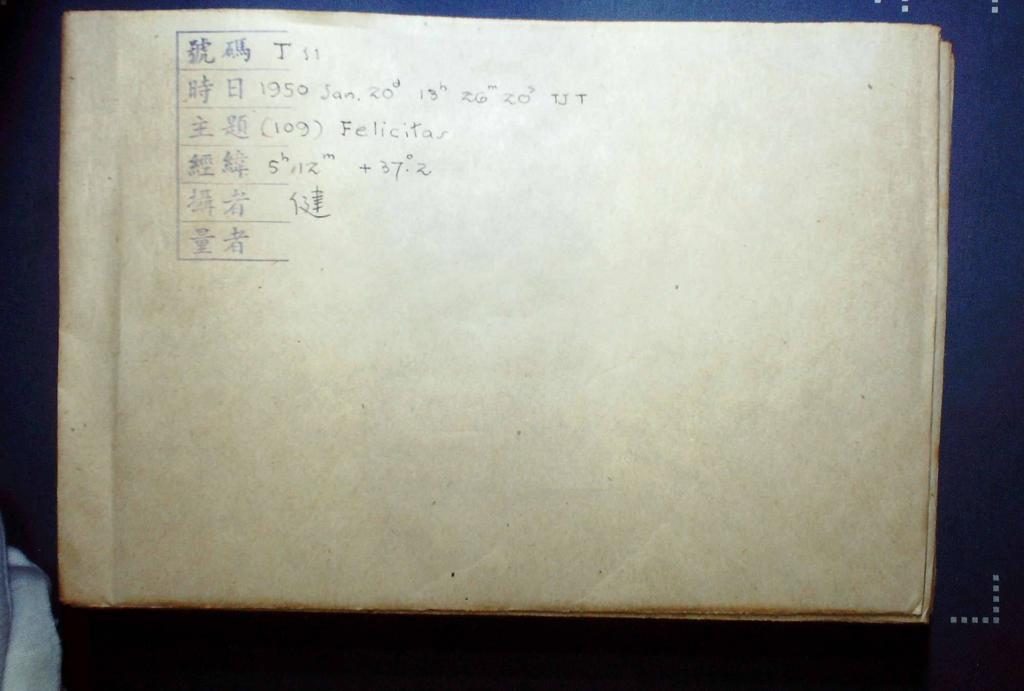 號碼 J 51
時日 1950 Jan. 20ᵈ 13ʰ 26ᵐ 20ˢ TJT
主題 (109) Felicitas
經緯 5ʰ12ᵐ +37°.2
攝者 健
量者